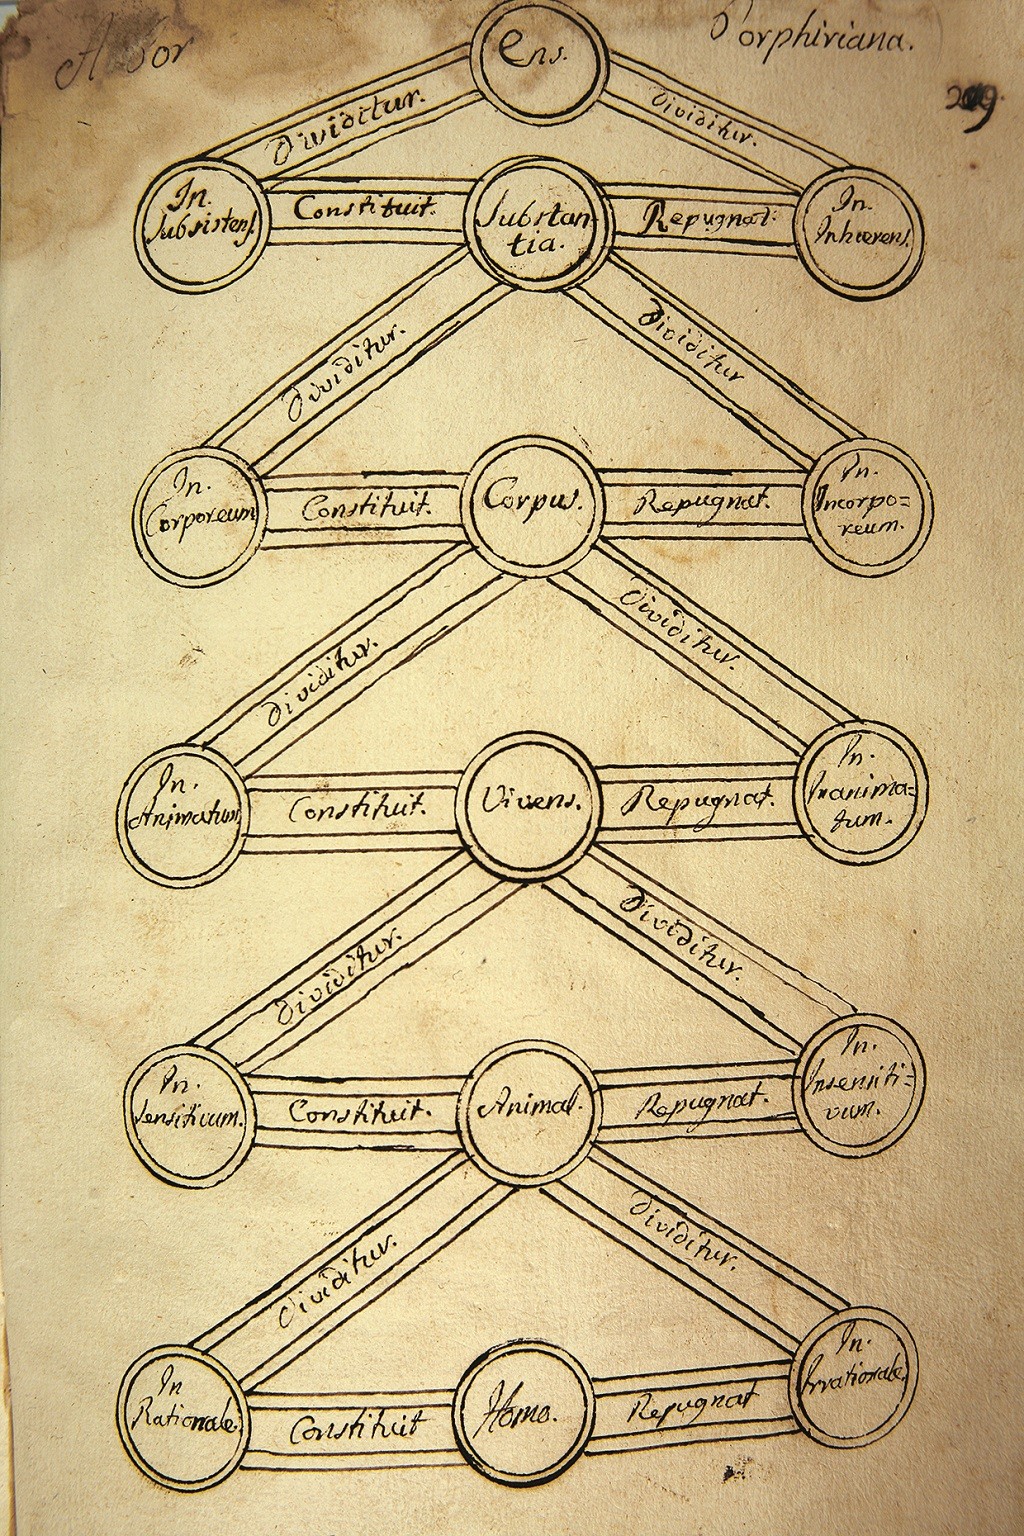 Arbor Porphiriana.
Ens.
Dividitur. Dividitur.
In. Subsistens.
Constituit.
Substan-
tia.
Repugnat.
In.
Inhærens.
Dividitur. Dividitur
In.
Corporeum
Constituit.
Corpus.
Repugnat.
In.
Incorpo=
reum.
Dividitur. Dividitur.
In.
Animatum
Constituit.
Vivens.
Repugnat.
In.
Inanima=
tum.
Dividitur. Dividitur.
In.
Sensitivum.
Constituit.
Animal.
Repugnat.
In.
Insensiti=
vum.
Dividitur. Dividitur.
In
Rationale.
Constituit
Homo.
Repugnat
In.
Irrationale.